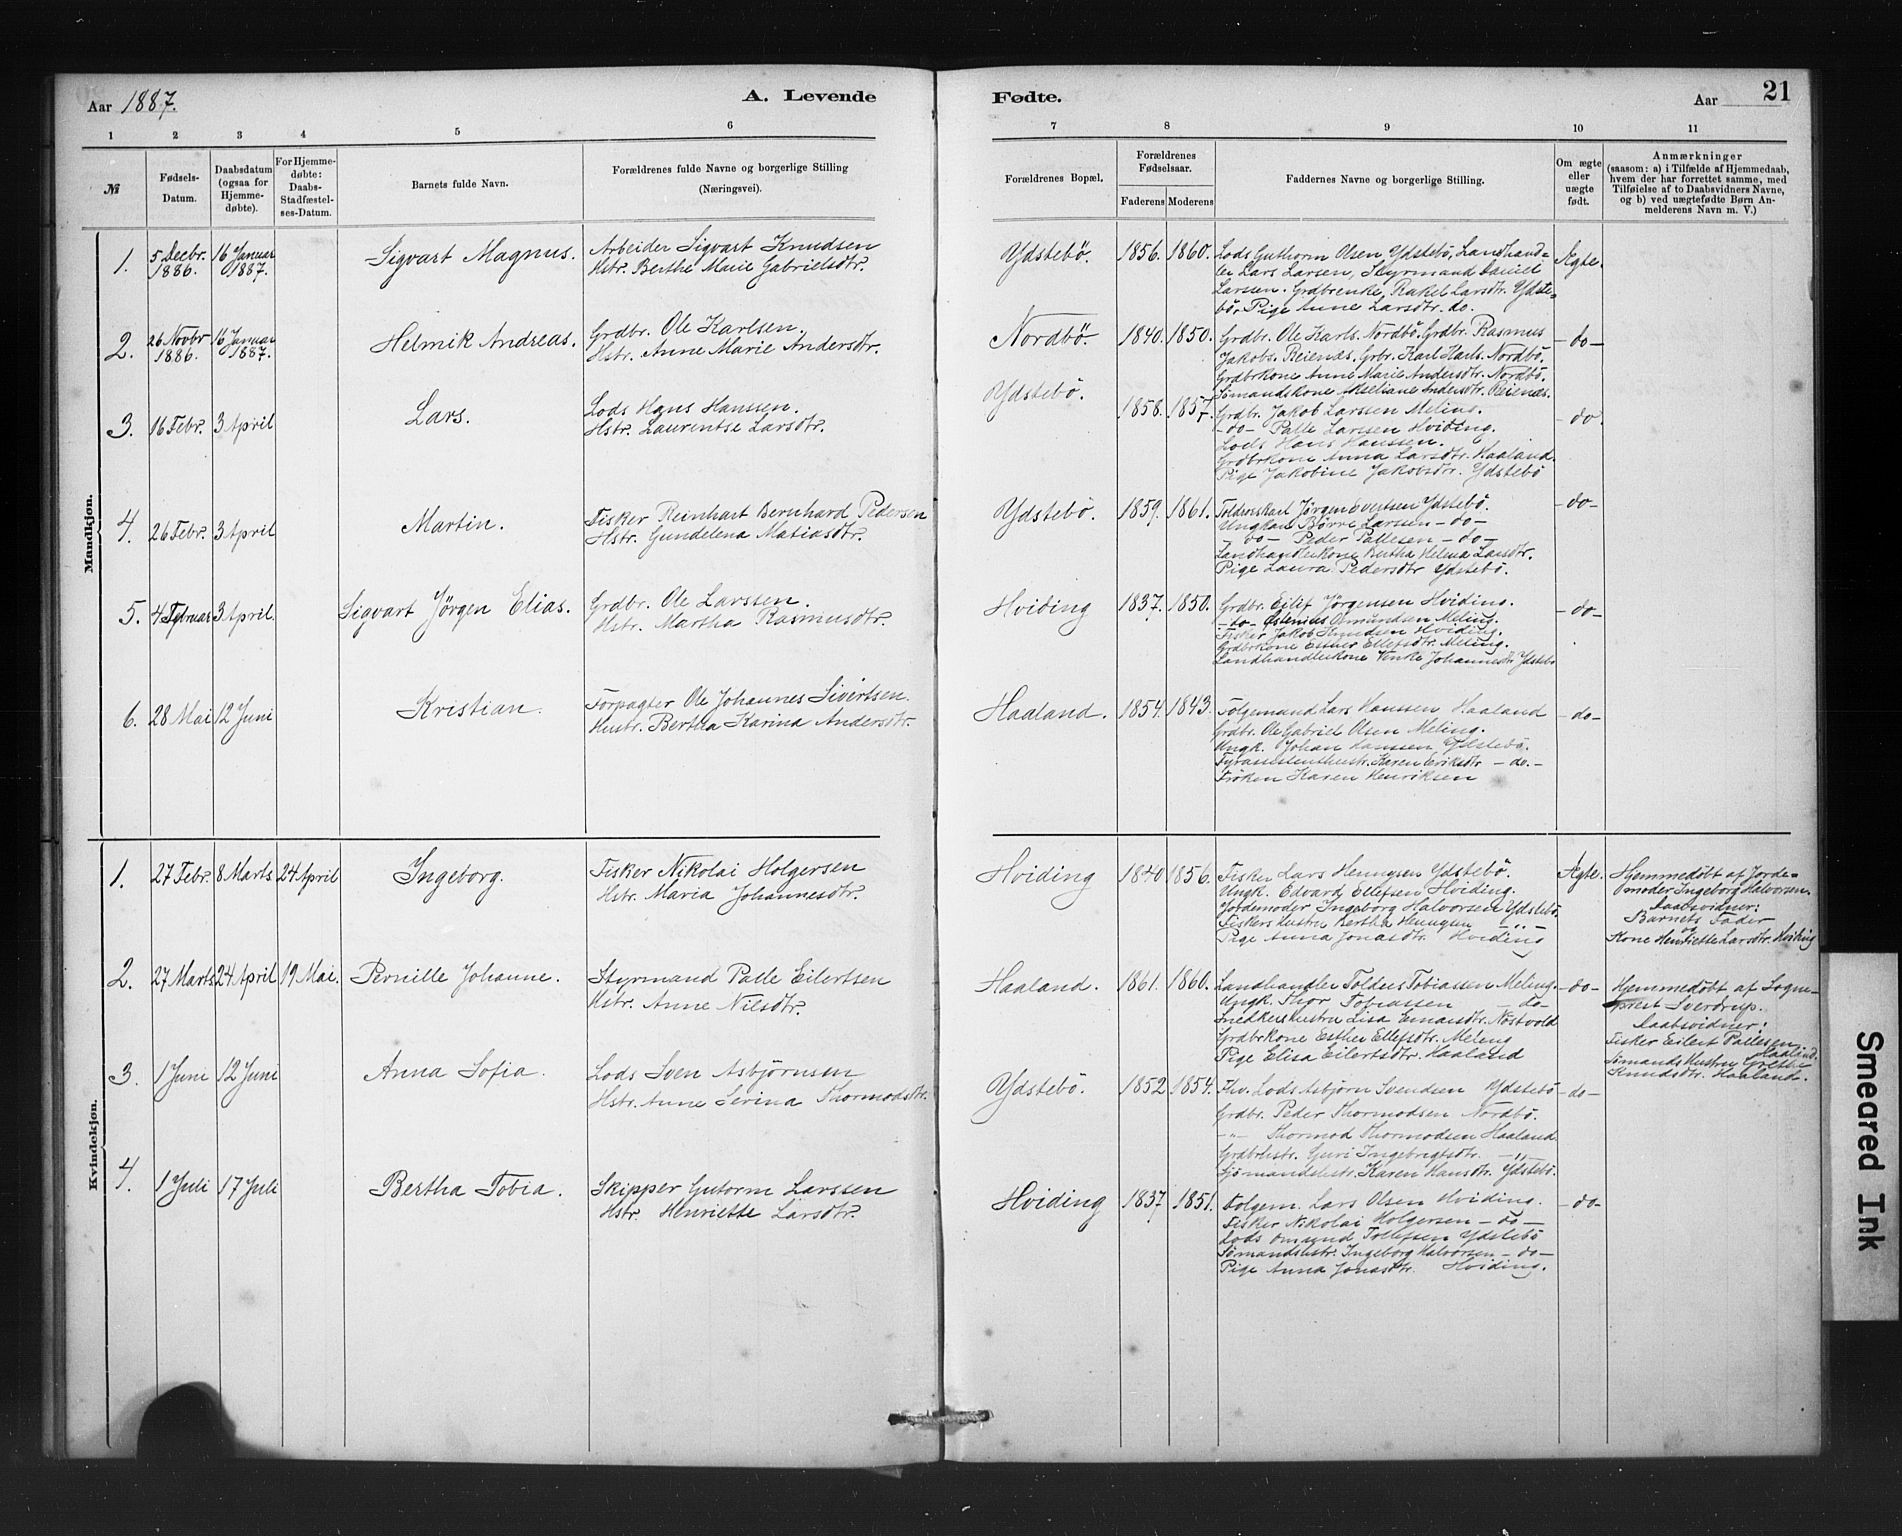 Aar 1887.
A. Levende
Fødte.
Aar
21
1 2 3 4 5 6 7 8 9 10 11
№
Fødsels-Datum.
Daabsdatum (ogsaa for Hjemme-døbte).
For Hjemme-døbte: Daabs-Stadfæstel-ses-Datum.
Barnets fulde Navn.
Forældrenes fulde Navne og borgerlige Stilling (Næringsvei).
Forældrenes Bopæl.
Forældrenes Fødselsaar.
Faderens Moderens
Faddernes Navne og borgerlige Stilling.
Om ægte eller uægte født.
Anmærkninger
(saasom: a) i Tilfælde af Hjemmedaab,
hvem der har forrettet samme, med
Tilføielse af to Daabsvidners Navne,
og b) ved uægtefødte Børn An-
melderens Navn m. V.)
Mandkjøn.
1. 5 Decbr. 1886. 16 Januar 1887. Sigvart Magnus.
Arbeider Sigvart Knudsen
Hstr. Berthe Marie Gabrielsdtr.
Ydstebö. 1856. 1860.
Lods Guthorm Olsen Ydstebö, Landhand=
ler Lars Larsen, Styrmand Daniel
Larssen. Grdbrenke, Rakel Larsdtr. Ydste=
bö. Pige Anne Larsdtr. do.
Ægte.
2. 26 Novbr 1886. 16 Januar 1887. Helmik Andreas.
Grdbr. Ole Karlsen.
Hstr. Anne Marie Andersdtr.
Nordbö. 1840. 1850.
Grdbr. Ole Karls. Nordbö. Grdbr. Rasmus
Jakobs. Reienæs. Grbr. Karl Karls. Nordbö.
Grdbrkone Anne Marie Andersdtr. Nordbö.
Sömandskone Andersdtr. Reienæs.
- do -
3. 16 Febr. 3 April Lars.
Lods Hans Hanssen.
Hstr. Laurentse Larsdtr.
Ydstebö. 1858. 1857.
Grdbr. Jakob Larssen Meling.
- do - Palle Larssen Hviding.
Lods Hans Hanssen.
Grdbrkone Anna Larsdtr. Haaland.
Pige Jakobine Jakobsdtr. Ydstebö
- do.
4. 26 Febr. 3 April Martin.
Fisker Reinhart Bernhard Pedersen
Hstr. Gundelena Matiasdtr.
Ydstebö. 1859. 1861.
Jörgen Evertsen Ydstebö.
Ungkarl Börre Larsen - do -
- do - Peder Pallesen - do -
Landhandlerkone Bertha Helena Larsdtr.
Pige Laura Pedersdtr Ydstebö.
- do -
5. 4 Februar 3 April. Sigvart Jörgen Elias.
Grdbr. Ole Larssen.
Hstr. Martha Rasmusdtr.
Hviding 1837. 1850.
Grdbr. Eilif Jörgensen Hviding.
- do - Östenius Osmundsen Meling.
Fisker Jakob Knudsen Hviding.
Grdbrkone Esther Ellefsdtr. Meling.
Landhandlerkone Vinke Johannesdtr Ydstebö
- do -
6. 28 Mai 12 Juni Kristian.
Forpagter Ole Johannes Sivertsen.
Hustr. Bertha Karina Andersdtr.
Haaland. 1854. 1843.
Folgemand Lars Hanssen Haaland
Grdbr. Ole Gabriel Olsen Meling.
Ungk. Johan Hanssen Ydstebö.
Karen Eriksdtr - do. -
Fröken Karen Henriksen
- do -
Kvindekjøn.
1. 27 Febr. 8 Marts 24 April Ingeborg.
Fisker Nikolai Holgersen
Hstr. Maria Johannesdtr.
Hviding 1840 1856.
Fisker Lars Henrysen Ydstebö.
Ungk. Edvard Ellefsen Hviding.
Jordemoder Ingeborg Halvorsen Ydstebö.
Fiskers Hustru Bertha Henrysen - " -
Pige Anna Jonasdtr. Hviding
Ægte.
Hjemmedöbt af Jorde=
moder Ingeborg Halvorsen.
Daabsvidner:
Barnets Fader
og
Kone Henriette Larsdtr. Hviding
2. 27 Marts 24 April 19 Mai. Pernille Johanne.
Styrmand Palle Eilertsen
Hstr. Anne Nilsdtr.
Haaland. 1861. 1860.
Landhandler Tolders Tobiassen Meling.
Ungk. Thor Tobiassen - do -
Snedkershustru Lisa Einarsdtr. Nöstvold
Grdbrkone Esther Ellefsdtr. Meling
Pige Elisa Eilertsdtr. Haaland
- do -
Hjemmedöbt af Sogne=
prest Sverdrup.
Daabsvidner:
Fisker Eilert Pallesen
Haaland.
Sömands Hustru Grethe
Knudsdtr. Haaland.
3. 1 Juni 12 Juni Anna Sofia.
Lods Sven Asbjörnsen
Hstr. Anne Serina Thormodsdtr.
Ydstebö. 1852 1854.
Fhv. Lods Asbjörn Svendsen Ydstebö
Grdbr. Peder Thormodsen Nordbö.
- " - Thormod Thormodsen Haaland.
Grdbrhstr. Guri Ingebrigtsdtr. - " -
Sjömandshstr. Karen Hansdtr. Ydstebö.
- do -
4. 1 Juli 17 Juli Bertha Tobia.
Skipper Gutorm Larssen
Hstr. Henriette Larsdtr.
Hviding 1837 1851.
Folgem. Lars Olsen Hviding.
Fisker Nikolai Holgersen - do -
Lods Omund Tollefsen Ydstebö
Sömandshstr. Ingeborg Halvorsen - do -
Pige Anna Jonasdtr. Hviding.
- do -
Smeared Ink